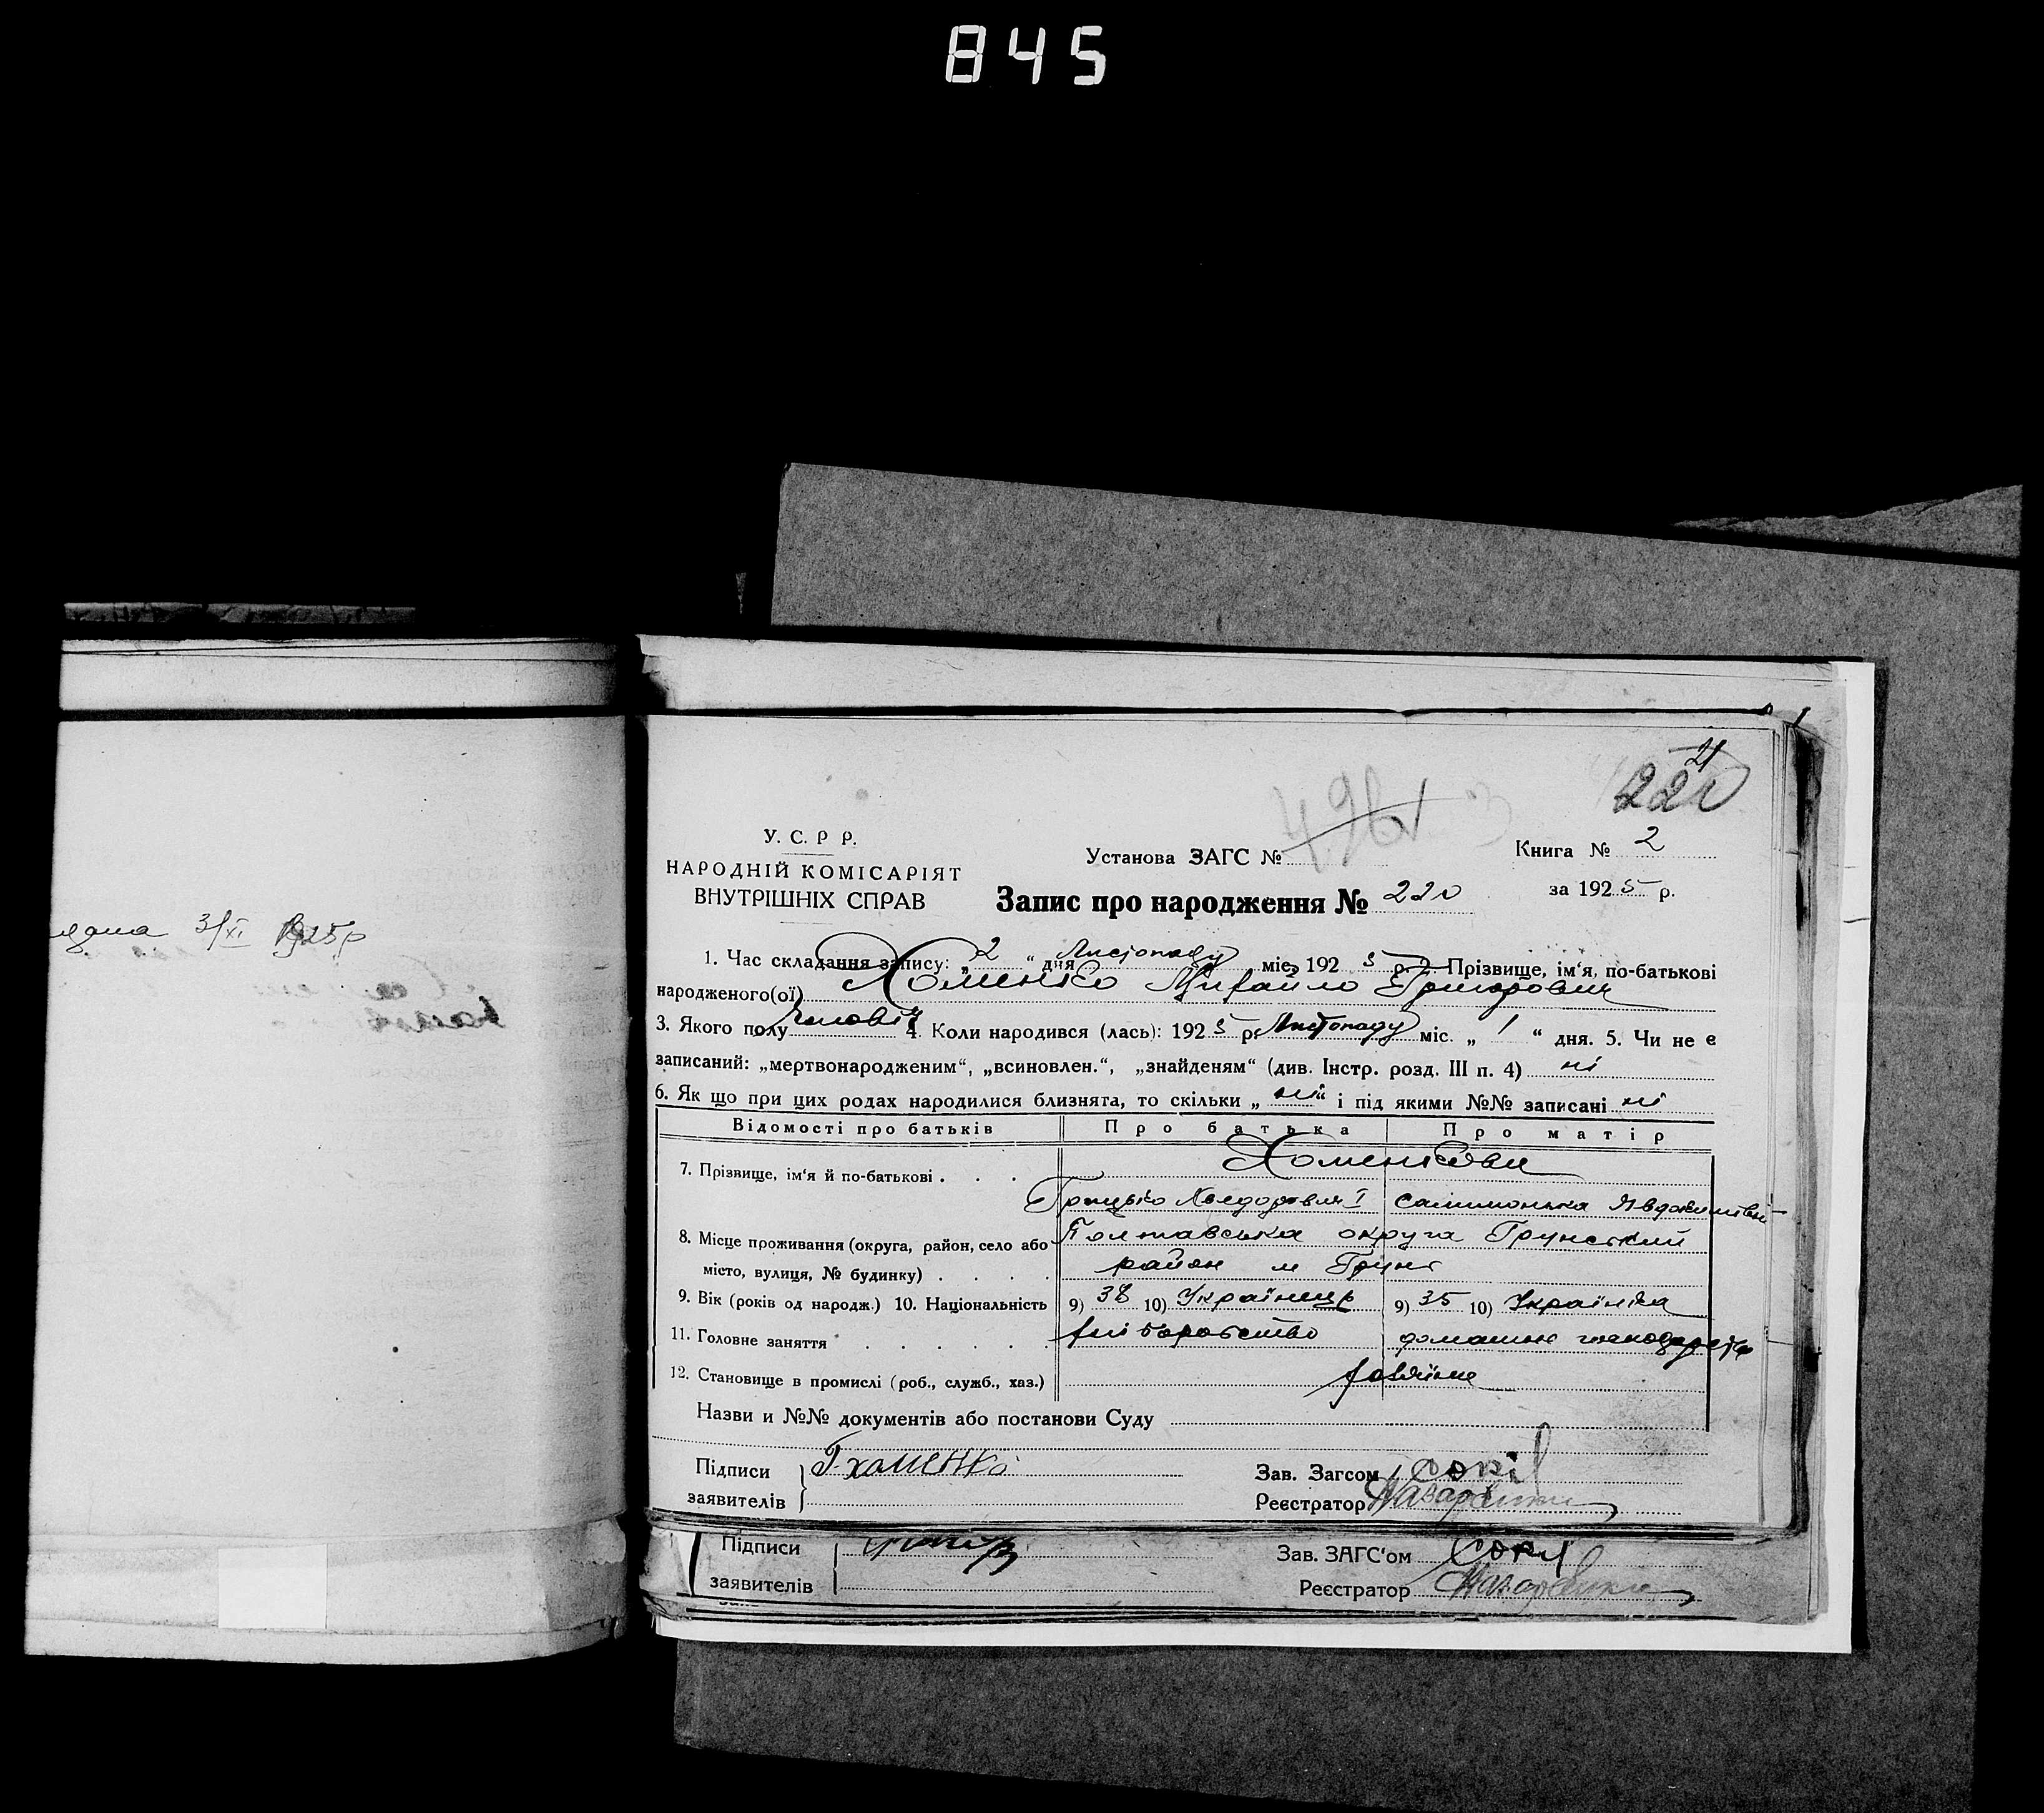 845
21
220
У. С. Р Р.
НАРОДНІЙ КОМІСАРІЯТ
ВНУТРІШНІХ СПРАВ
Установа ЗАГС №
Книга № 2
за 1925 р.
Запис про народження № 220
3/XI 1925 р
1. Час складання запису: „2“ дня Листопаду міс. 1925 р. 2. Прізвище, ім'я, по-батькові
народженого(ої) Хоменко Михайло Григорович
3. Якого полу Чоловіч 4. Коли народився (лась): 1925 р. Листопаду міс. „1“ дня. 5. Чи не є
записаний: „мертвонародженим“, „всиновлен.“, „знайденям“ (див. Інстр. розд. III п. 4) ні
6. Як що при цих родах народилися близнята, то скільки „ні“ і під якими №№ записані ні
Відомості про батьків Про батька Про матір
7. Прізвище, ім'я й по-батькові . . . Хоменкови
Грицько Хведорович І
8. Місце проживання (округа, район, село або Полтавська округа Грунський
місто, вулиця, № будинку) . . . . район м Грунь
9. Вік (років од народж.) 10. Національність 9) 38 10) Українець 9) 35 10) Українка
11. Головне заняття . . . . . . хліборобство домашнє
12. Становище в промислі (роб., служб., хаз.) хазяїни
Назви и №№ документів або постанови Суду
Підписи Г. Хоменко
заявителів
Зав. Загсом Сокіл
Реєстратор
Підписи
заявителів
Зав. ЗАГС'ом Сокіл
Реєстратор